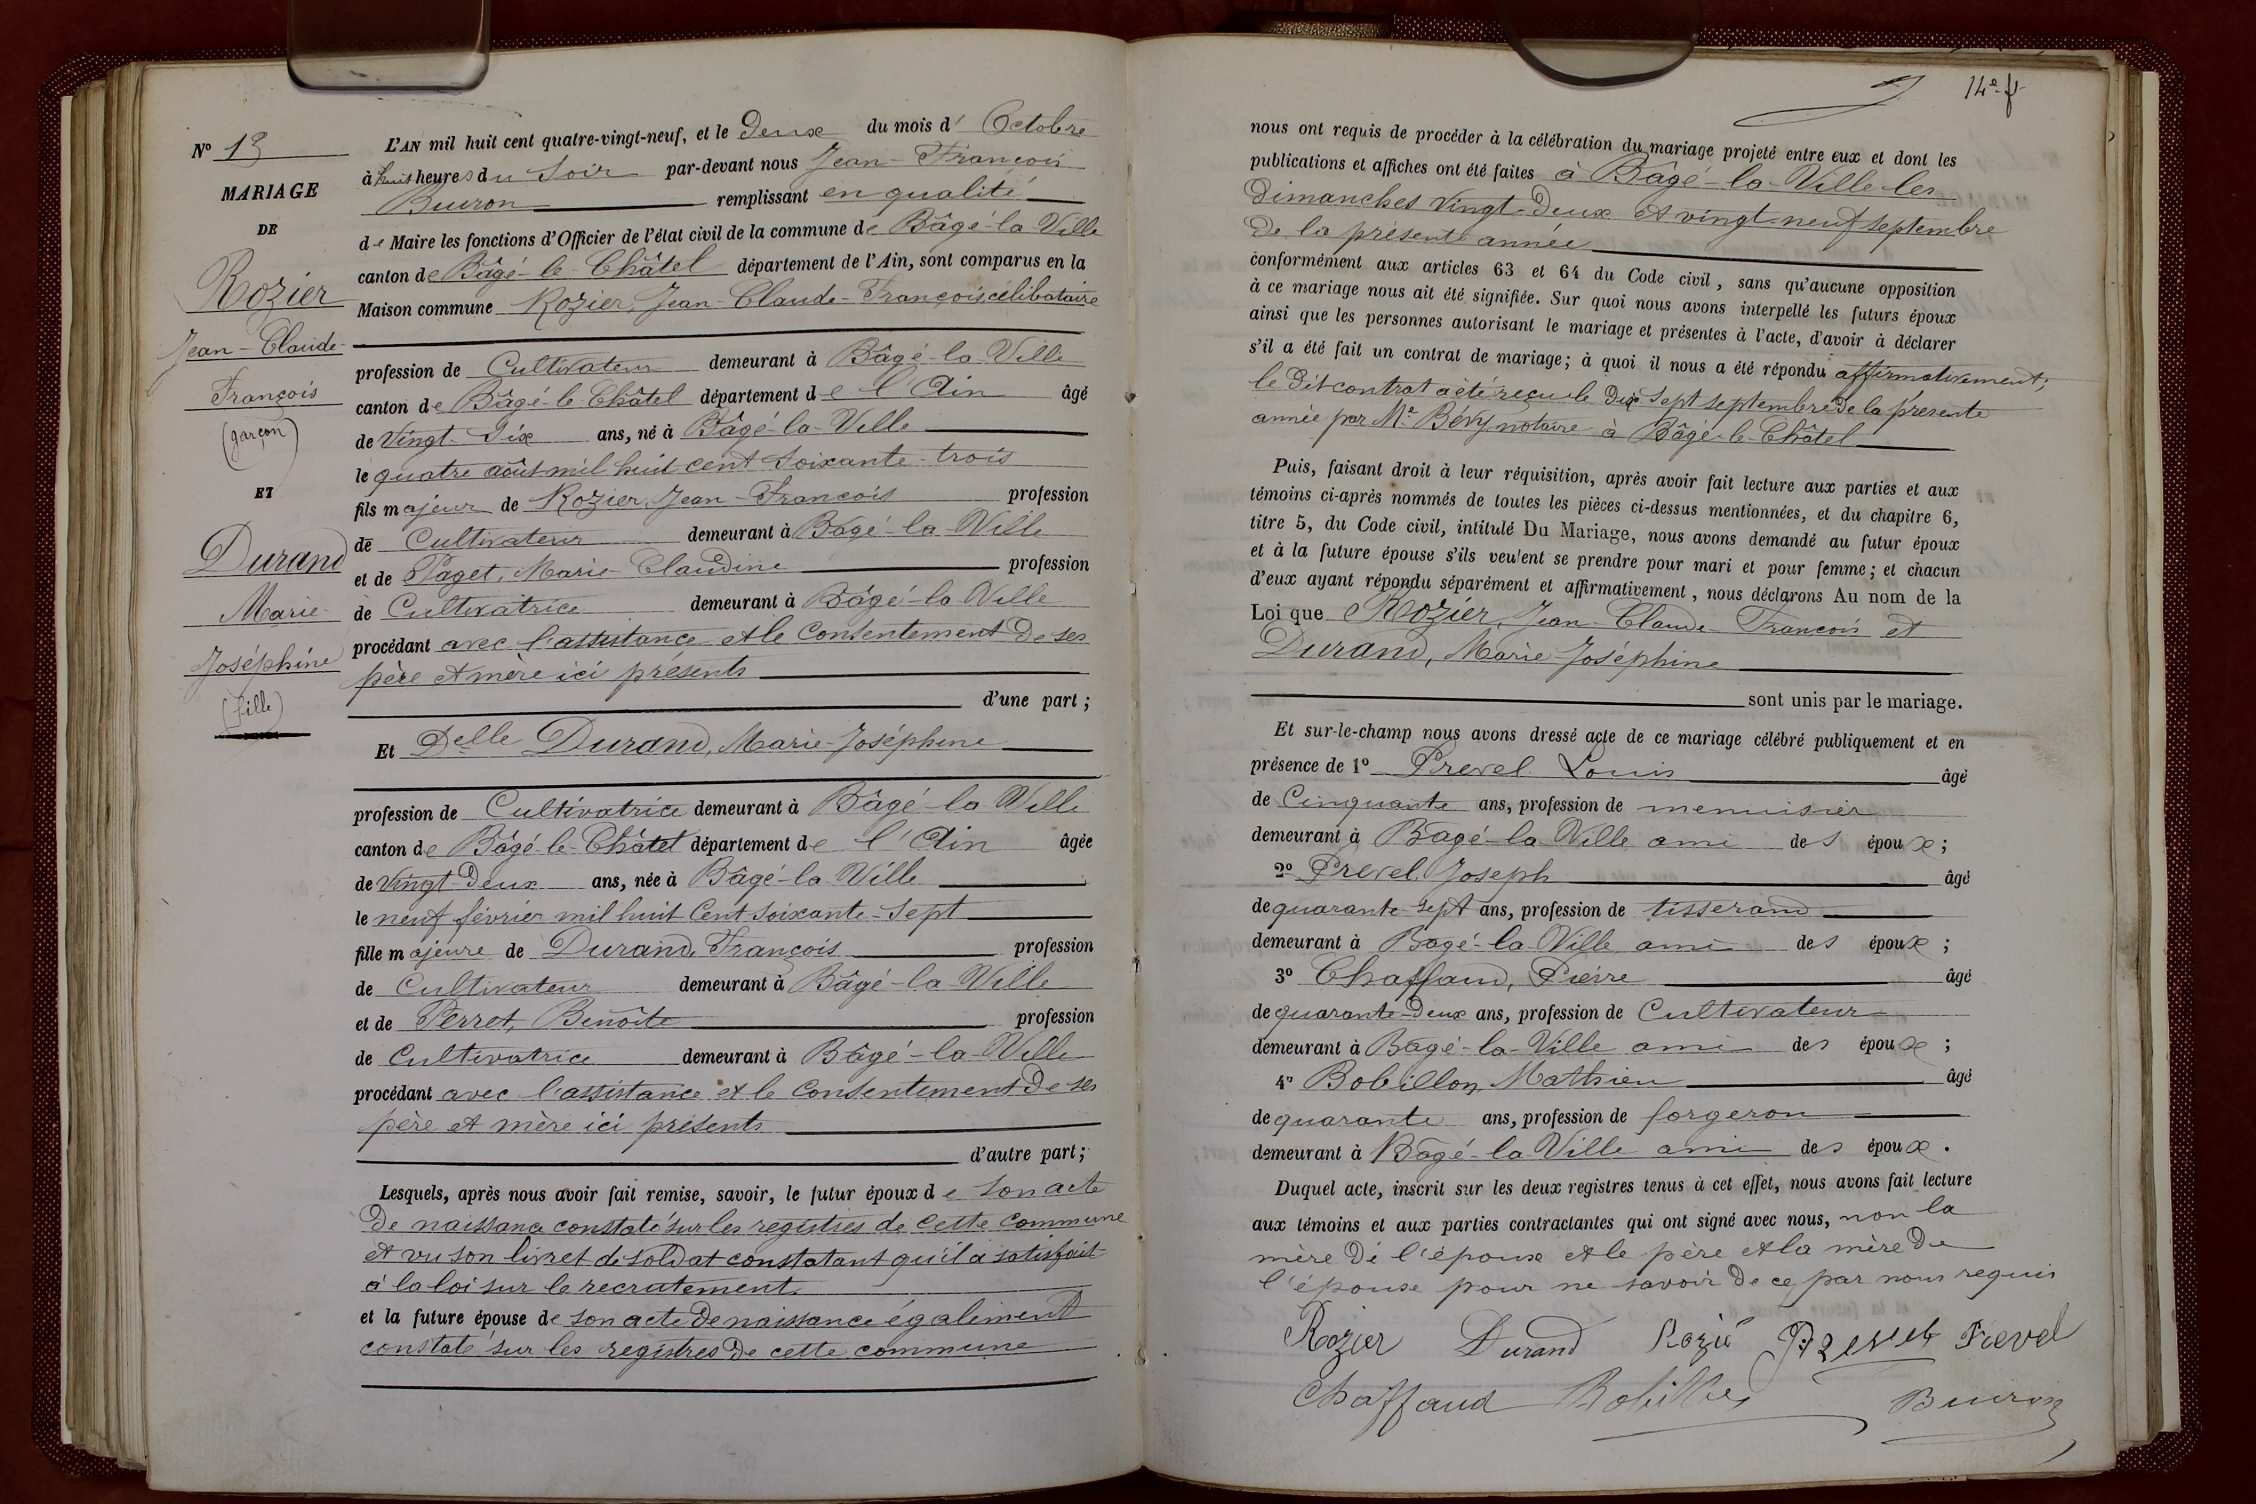 N° 13
MARIAGE
DE
Rozier
Jean-Claude-
François
(garçon)
ET
Durand
Marie-
Joséphine
(fille)
L'AN mil huit cent quatre-vingt-neuf, et le deux du mois d' Octobre
à huit heures du Soir par-devant nous Jean-François
Buiron remplissant en qualité
de Maire les fonctions d'Officier de l'état civil de la commune de Bâgé-la-Ville
canton de Bâgé-le-Châtel département de l'Ain, sont comparus en la
Maison commune Rozier, Jean-Claude-François célibataire
profession de Cultivateur demeurant à Bâgé-la-Ville
canton de Bâgé-le-Châtel département de l'Ain âgé
de Vingt-Six ans, né à Bâgé-la-Ville
le quatre août mil huit cent soixante-trois
fils majeur de Rozier, Jean-François profession
de Cultivateur demeurant à Bâgé-la-Ville
et de Paget, Marie-Claudine profession
de Cultivatrice demeurant à Bâgé-la-Ville
procédant avec l'assistance et le consentement de ses
père et mère ici présents
d'une part ;
Et Delle Durand, Marie-Joséphine
profession de Cultivatrice demeurant à Bâgé-la-Ville
canton de Bâgé-le-Châtel département de l'Ain âgée
de Vingt-Deux ans, née à Bâgé-la-Ville
le neuf février mil huit Cent soixante-sept
fille majeure de Durand, François profession
de Cultivateur demeurant à Bâgé-la-Ville
et de Perret, Benoîte profession
de Cultivatrice demeurant à Bâgé-la-Ville
procédant avec l'assistance et le consentement de ses
père et mère ici présents
d'autre part ;
Lesquels, après nous avoir fait remise, savoir, le futur époux de son acte
de naissance constaté sur les registres de cette commune
et vu son livret de soldat constatant qu'il a satisfait
à la loi sur le recrutement
et la future épouse de son acte de naissance également
constaté sur les registres de cette commune
14e f
nous ont requis de procéder à la célébration du mariage projeté entre eux et dont les
publications et affiches ont été faites à Bâgé-la-Ville les
dimanches vingt-deux et vingt-neuf septembre
de la présente année
conformément aux articles 63 et 64 du Code civil, sans qu'aucune opposition
à ce mariage nous ait été signifiée. Sur quoi nous avons interpellé les futurs époux
ainsi que les personnes autorisant le mariage et présentes à l'acte, d'avoir à déclarer
s'il a été fait un contrat de mariage; à quoi il nous a été répondu affirmativement;
le dit contrat a été reçu le dix sept septembre de la présente
année par Me Bévy notaire à Bâgé-le-Châtel
Puis, faisant droit à leur réquisition, après avoir fait lecture aux parties et aux
témoins ci-après nommés de toutes les pièces ci-dessus mentionnées, et du chapitre 6,
titre 5, du Code civil, intitulé Du Mariage, nous avons demandé au futur époux
et à la future épouse s'ils veulent se prendre pour mari et pour femme; et chacun
d'eux ayant répondu séparément et affirmativement, nous déclarons Au nom de la
Loi que Rozier, Jean-Claude-François et
Durand, Marie-Joséphine
sont unis par le mariage.
Et sur-le-champ nous avons dressé acte de ce mariage célébré publiquement et en
présence de 1° Prevel Louis âgé
de Cinquante ans, profession de menuisier
demeurant à Bâgé-la-Ville ami des époux ;
2° Prevel, Joseph âgé
de quarante-sept ans, profession de tisserand
demeurant à Bâgé-la-Ville ami des époux ;
3° Chaffaud, Pierre âgé
de quarante-deux ans, profession de Cultivateur
demeurant à Bâgé-la-Ville ami des époux ;
4° Bobillon, Mathieu âgé
de quarante ans, profession de forgeron
demeurant à Bâgé-la-Ville ami des époux.
Duquel acte, inscrit sur les deux registres tenus à cet effet, nous avons fait lecture
aux témoins et aux parties contractantes qui ont signé avec nous, non la
mère de l'époux et le père et la mère de
l'épouse pour ne savoir de ce par nous requis
Rozier Durand Rozié Prevel Prevel
Chaffaud Bobillon Buiron